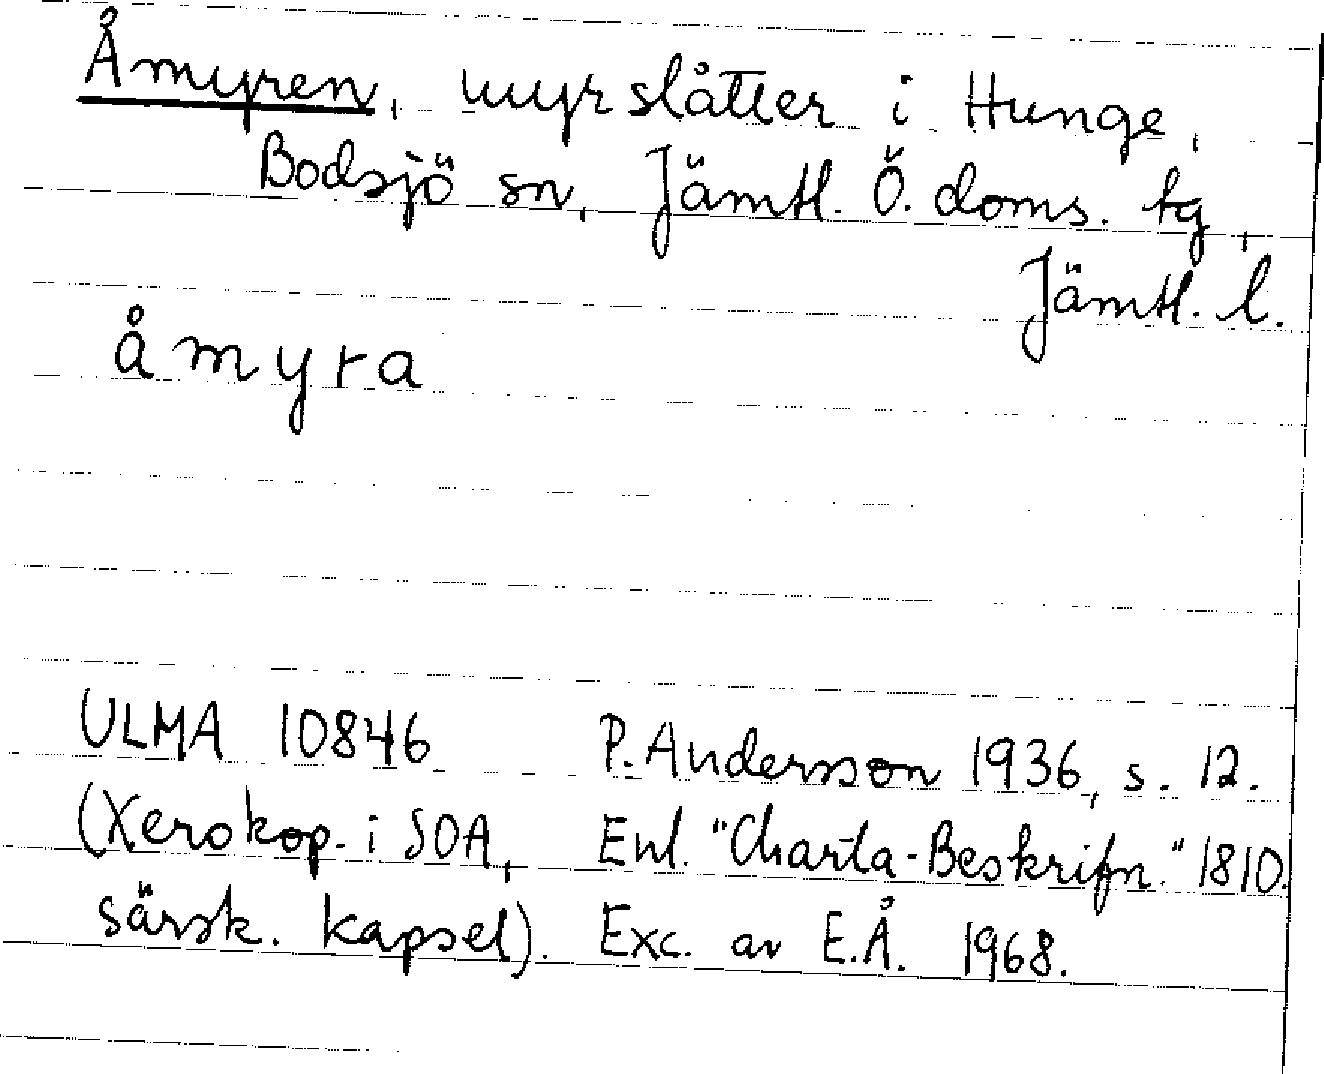 Åmyren, myrslåtter i Hunge,
Bodsjö sn, Jämtl. Ö. doms. tg,
Jämtl. l.
åmyra
ULMA 10846 P. Andersson 1936, s. 12.
(Xerokop. i SOA, Enl. "Charta-Beskrifn." 1810.
särsk. kapsel). Exc. av E.Å. 1968.